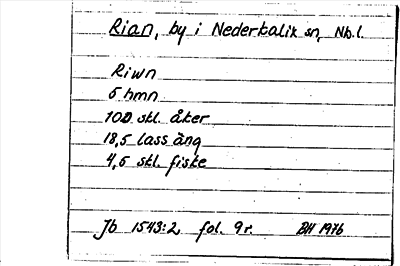 Rian, by i Nederkalix sn, Nb.l.
Riwn
5 hmn
102 skl. åker
18,5 lass äng
4,5 skl. fiske
Jb 1543:2, fol. 9r. BH 1976